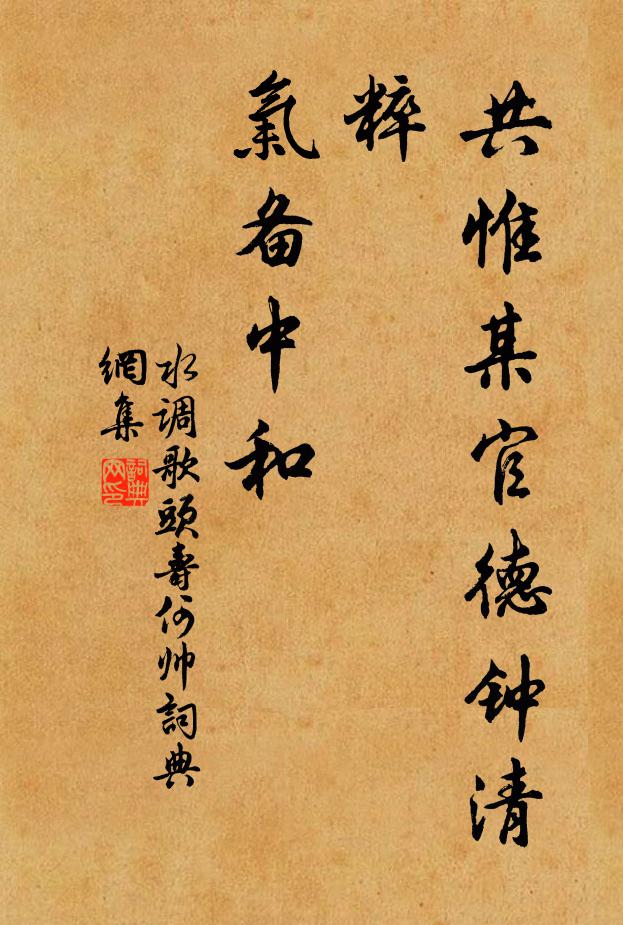 共惟某官德钟清
粹
氣备中和
水调歌頭壽何帅詞典
網集
詞典
网印